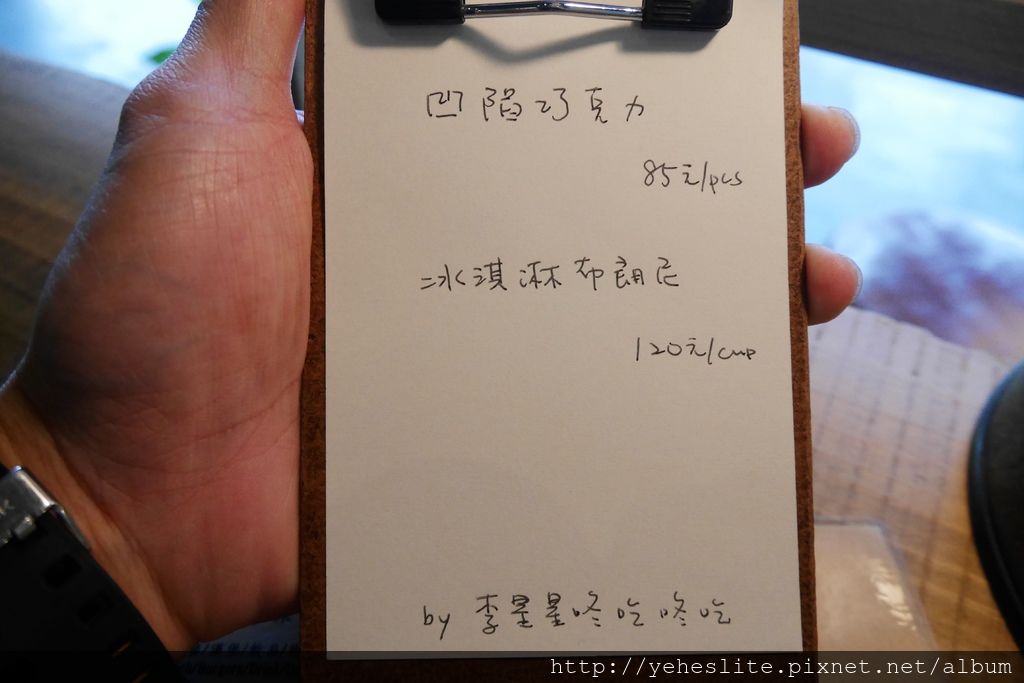 凹陷巧克力
85元/pcs
冰淇淋布朗尼
120元/cup
by 李星星咚吃咚吃
http://yeheslite.pixnet.net/album